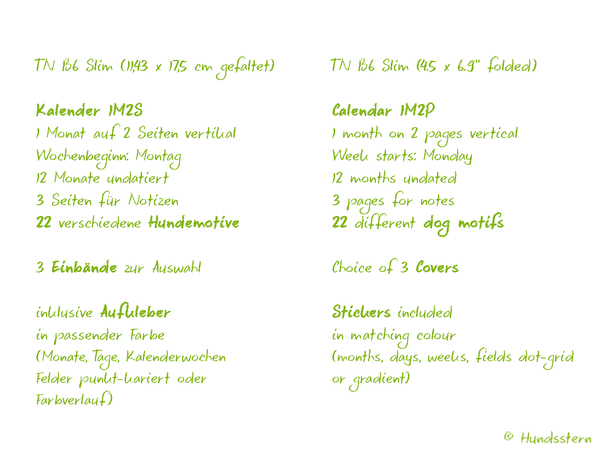 TN B6 Slim (11,43 x 17,5 cm gefaltet)
Kalender 1M2S
1 Monat auf 2 Seiten vertikal
Wochenbeginn: Montag
12 Monate undatiert
3 Seiten für Notizen
22 verschiedene Hundemotive
3 Einbände zur Auswahl
inklusive Aufkleber
in passender Farbe
(Monate, Tage, Kalenderwochen
Felder punkt-kariert oder
Farbverlauf)
TN B6 Slim (4.5 x 6.9" folded)
Calendar 1M2P
1 month on 2 pages vertical
Week starts: Monday
12 months undated
3 pages for notes
22 different dog motifs
Choice of 3 Covers
Stickers included
in matching colour
(months, days, weeks, fields dot-grid
or gradient)
© Hundsstern